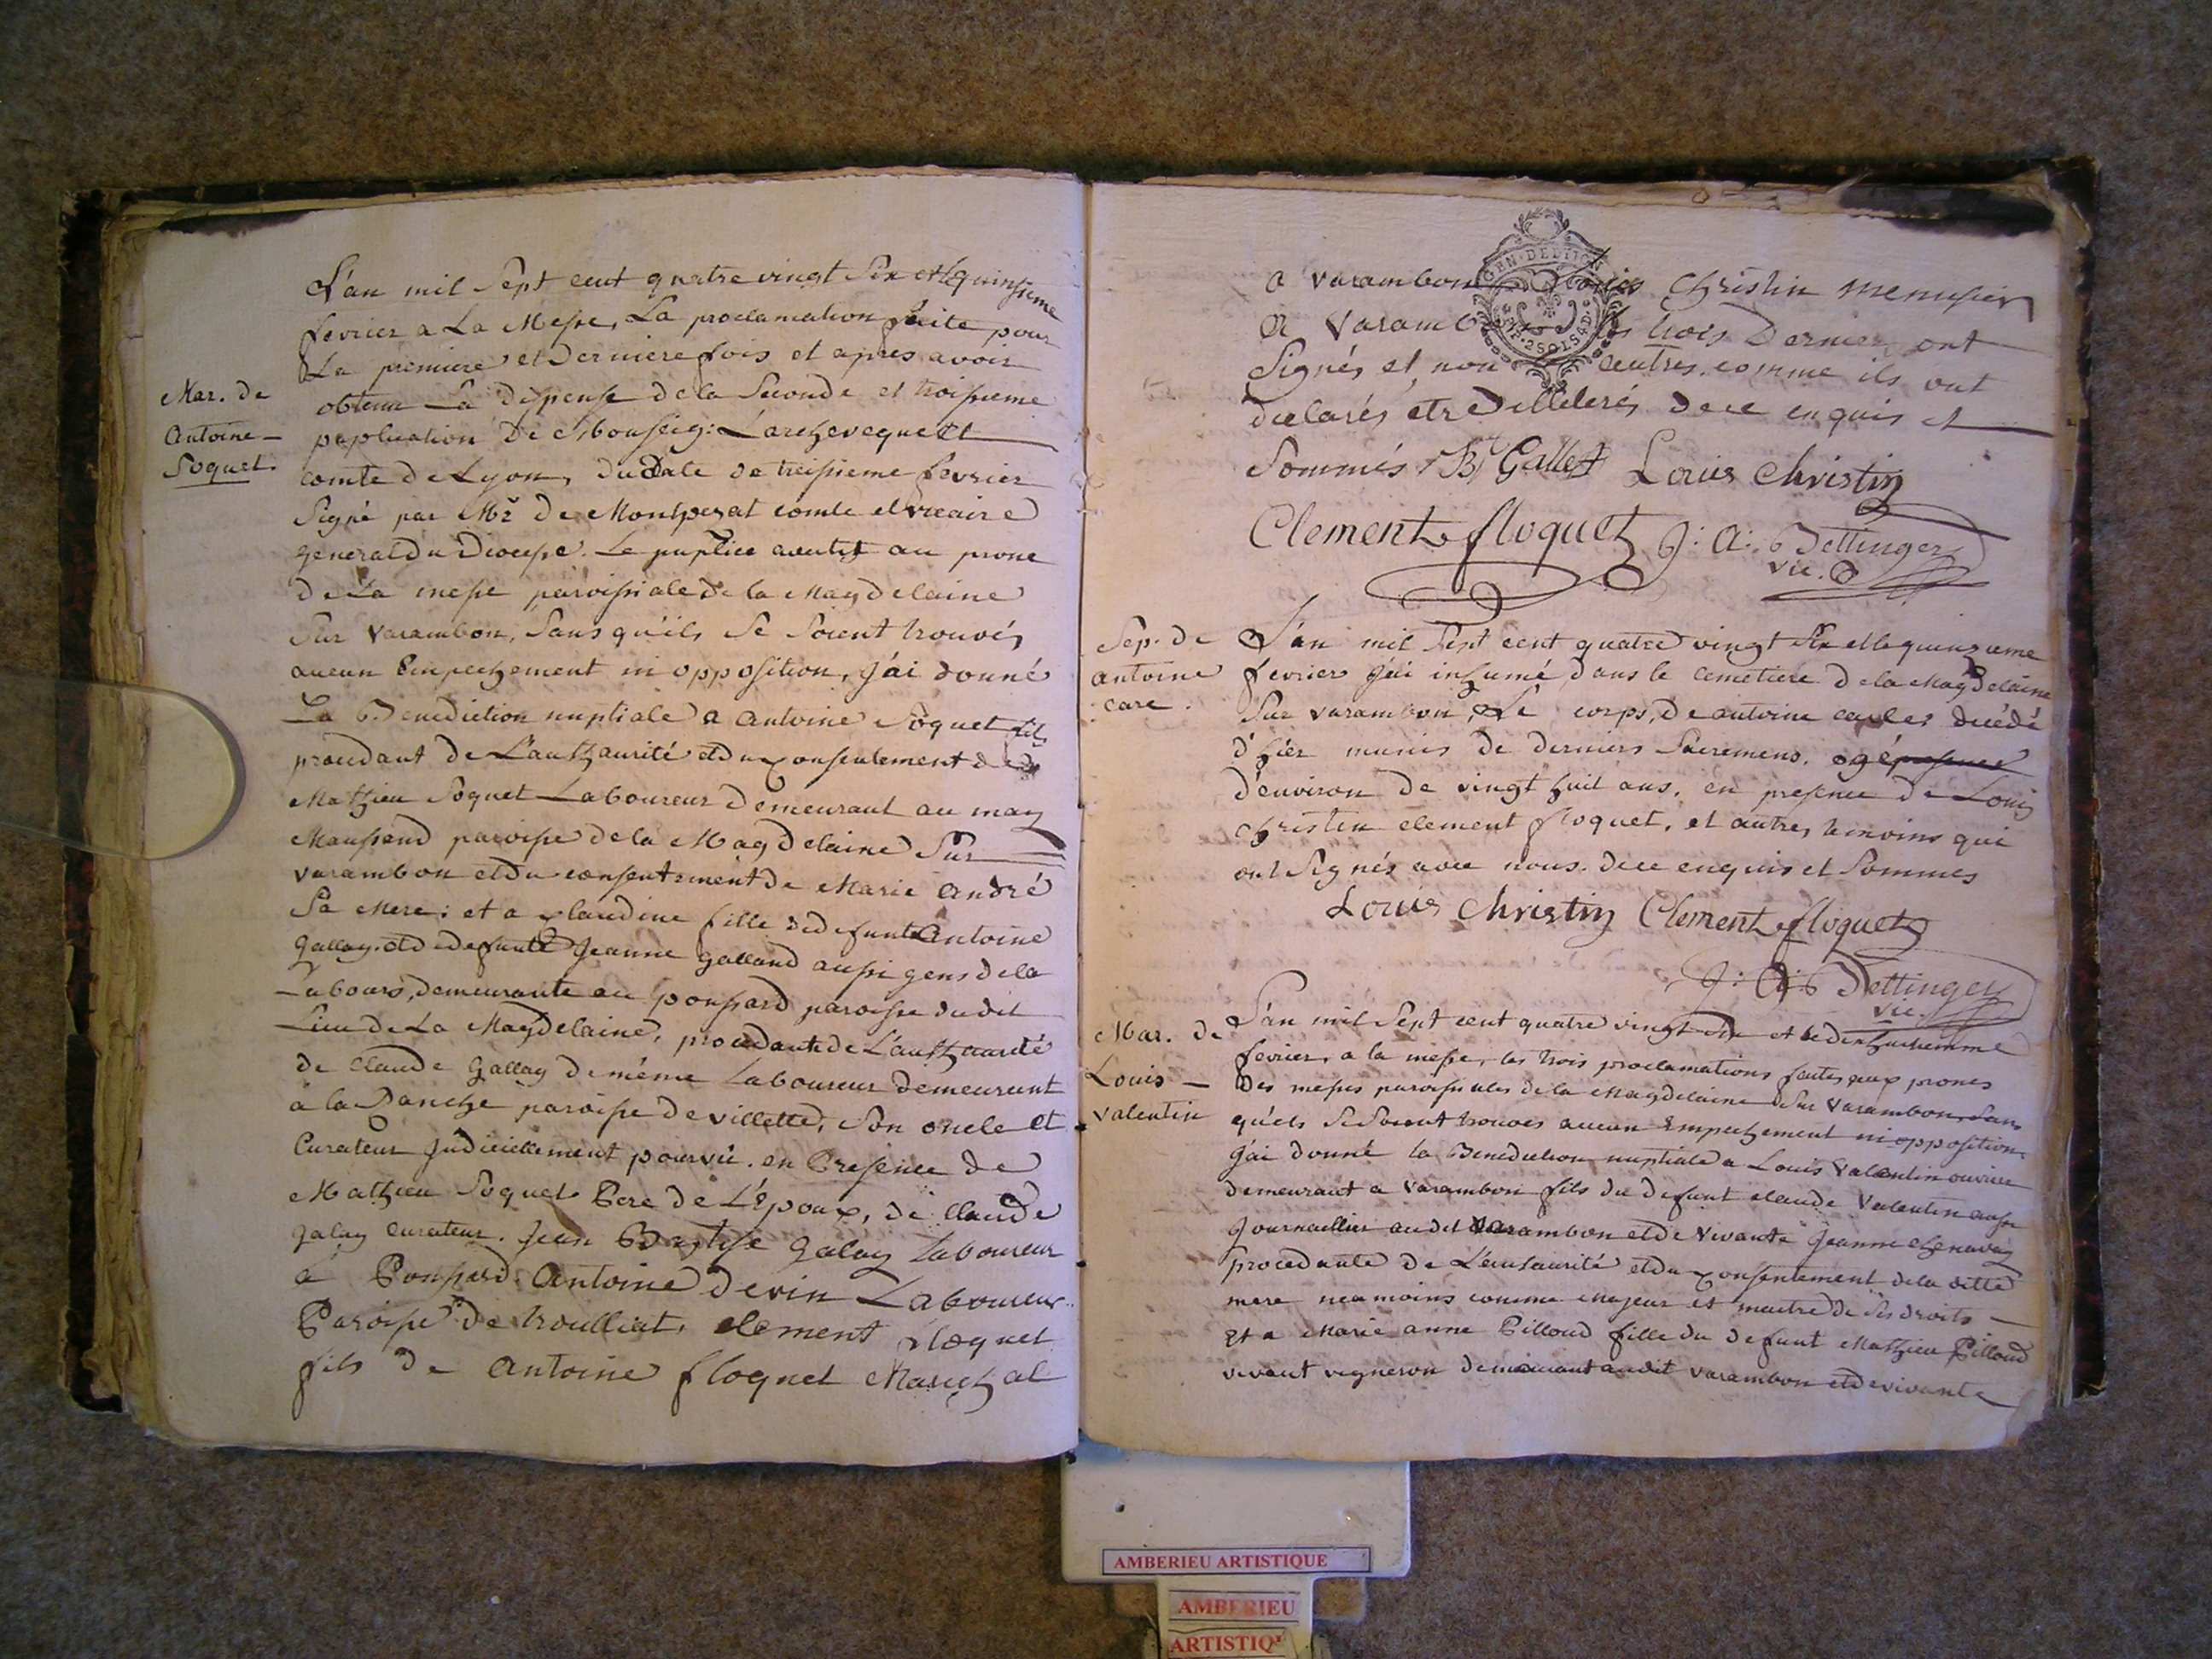 L'an mil Sept cent quatre vingt Six et le quinsieme
fevrier a La Messe, La proclamation faite pour
La premiere et Derniere fois et apres avoir
Mar. de
Antoine —
Soquet.
obtenu La dispense de la Seconde et troisieme
puplication De Monseig: L'archeveque et
comte de Lyon, du date de treisieme fevrier
Signé par Mr De Montperat comte et vicaire
general du Diocese. Le puplice au prone
De La messe paroissiale de la Magdelaine
Sur Varambon, Sans qu'ils Se Soient trouvés
aucun Empechement ni opposition, j'ai donné
La Benediction nuptiale a Antoine Soquet fils
procedant de L'authaurité et du Consentement de
Mathieu Soquet Laboureur Demeurant au may
Maussend paroisse de la Magdelaine Sur
varambon et du consentement de Marie André
Sa Mere; et a Claudine fille de defunt Antoine
Gallay. et de defunte Jeanne Galland aussi gens de la
Labours, demeurante au poussard paroisse du dit
Lieu de La Magdelaine, procedante de L'authaurité
de Claude Gallay de même Laboureur demeurant
à la Ranche paroisse de villette, Son oncle et
Curateur Judiciellement pourvû. en Presence de
Mathieu Soquet Pere de L'Epoux, de Claude
galay curateur. Jean Baptiste galay Laboureur
à Poussard. Antoine devin Laboureur
Paroisse de trouilliat, clement floquet
fils de Antoine floquet Marechal
GEN. DEDIION
2 SOLS 4 D.
a varambon Louis Christin menusier
a Varambon les trois Dernier ont
Signés et non les autres comme ils ont
declarés etre illeterés de ce enquis et
Sommés. JB Gallet Louis Christin
Clement floquet J: A: Dettinger
vic.
Sep. de
antoine
care.
L'an mil Sept cent quatre vingt Six et le quinzieme
fevrier j'ai inhumé dans le cemetiere de la Magdelaine
Sur varambon, Le corps, de antoine decédé
d'hier munis de derniers Sacremens. agé
d'environ de vingt huit ans. en presence de Louis
christin clement floquet, et autres temoins qui
ont Signés avec nous. de ce enquis et Sommes
Louis Christin Clement floquet
J: A: Dettinger
vic.
Mar. de
Louis —
Valentin
L'an mil Sept cent quatre vingt Six et le dixhuitiemme
fevrier, a la messe, les trois proclamations faites aux prones
Des messes paroissiales de la Magdelaine Sur Varambon, Sans
qu'ils Se Soient trouvés aucun Empechement ni opposition
j'ai donné la Benediction nuptiale a Louis Valentin ouvrier
demeurant a Varambon fils du defunt claude Valentin aussi
Journaellier au dit Varambon et de Vivante Jeanne chenavaz
procedante de L'authaurité et du Consentement de la ditte
mere neamoins comme majeur et maitre de Ses droits —
et a Marie anne Pilloud fille du defunt Mathieu Pilloud
vivant vigneron demeurant au dit varambon et de vivante
AMBERIEU ARTISTIQUE
AMBERIEU
ARTISTIQ